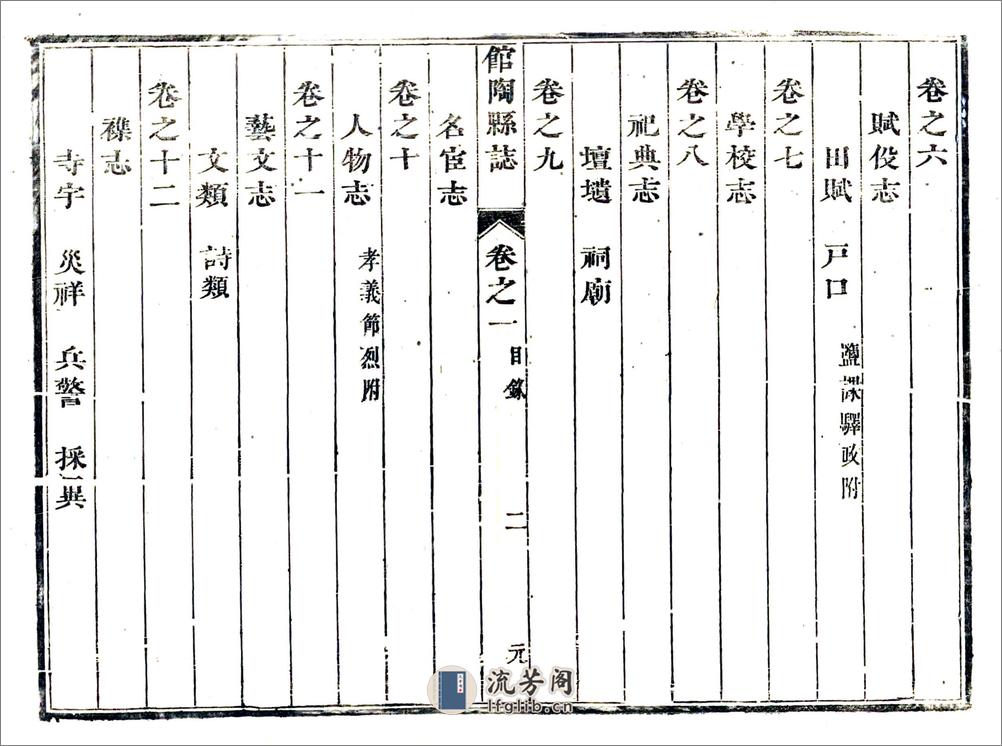 卷之六
賦役志
田賦 戸口 鹽課驛政附
卷之七
學校志
卷之八
祀典志
壇壝 祠廟
卷之九
館陶縣誌 卷之一 目錄 二 元
名宦志
卷之十
人物志 孝義節烈附
卷之十一
藝文志
文類 詩類
卷之十二
襍志
寺宇 災祥 兵警 採異
流芳阁
lfglib.cn